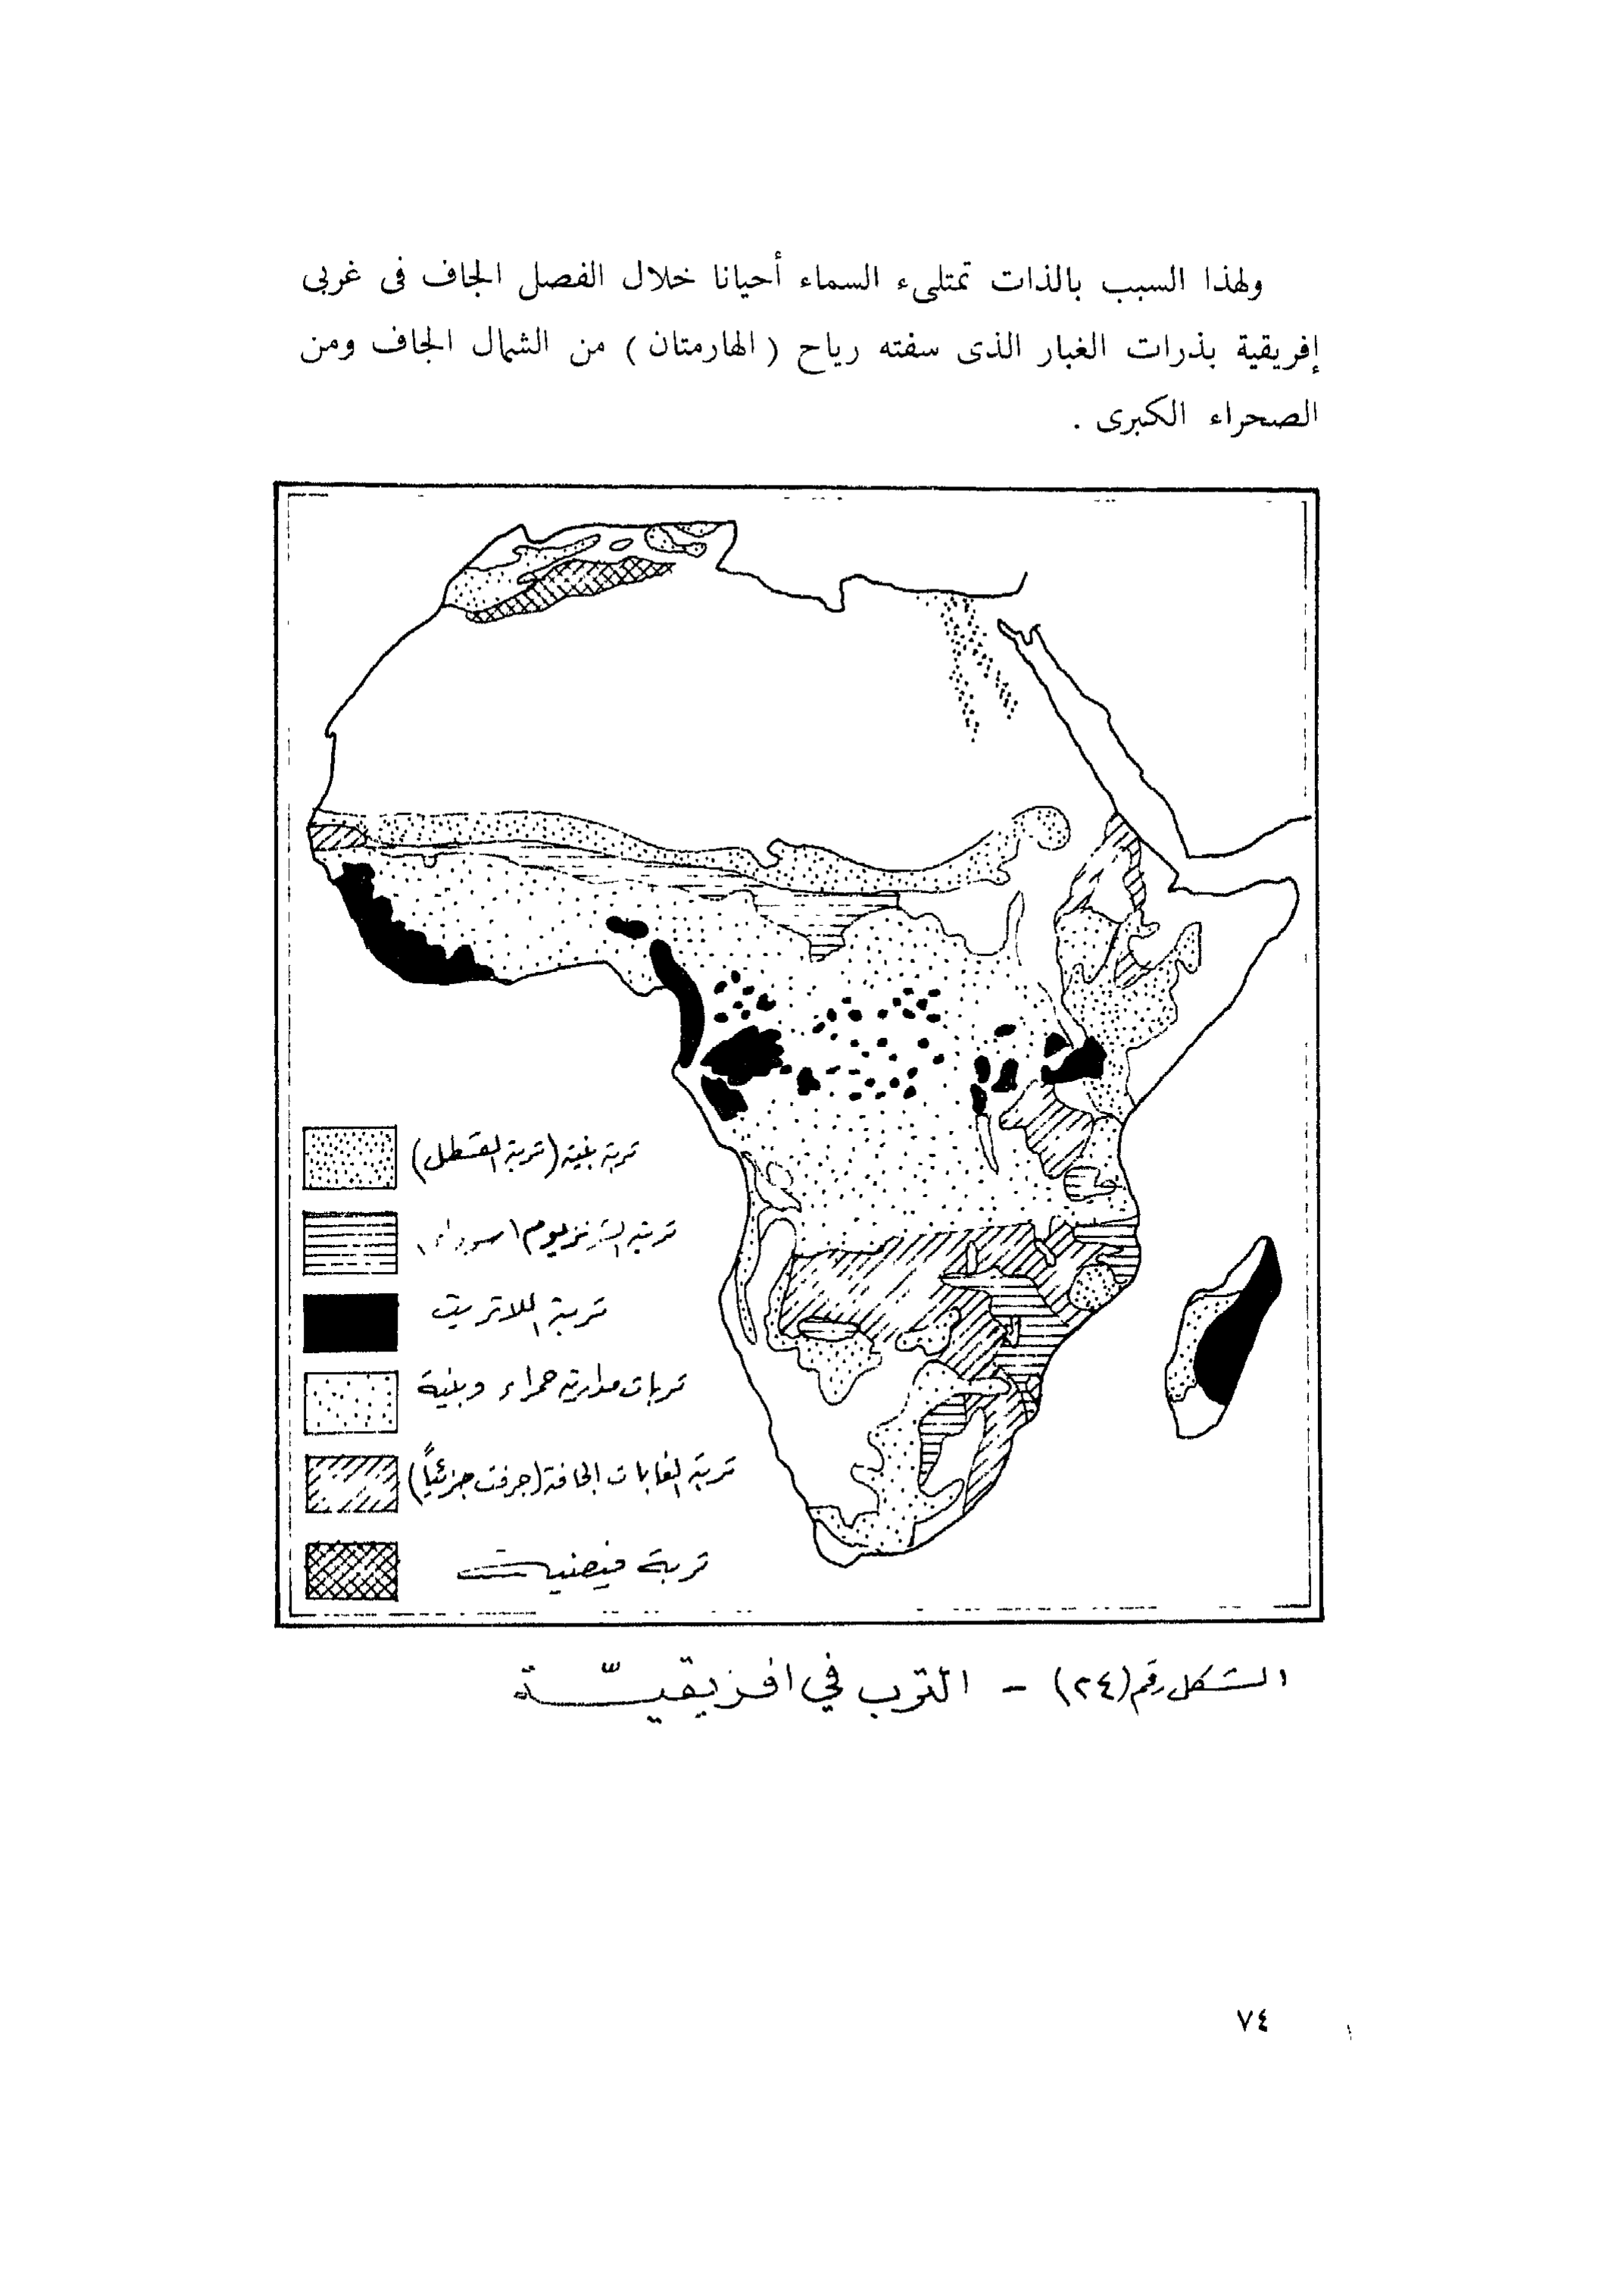 ولهذا السبب بالذات تمتلىء السماء أحيانا خلال الفصل الجاف فى غربى
إفريقية بذرات الغبار الذى سفته رياح ( الهارمتان ) من الشمال الجاف ومن
الصحراء الكبرى .
تربة بنية (تربة القسطل)
تربة
تربة اللاتريت
تربات مدارية حمراء وبنية
تربة الغابات الجافة (جرفت جزئياً)
تربة فيضية
الشكل رقم (٢٤) - الترب في افريقيّة
٧٤